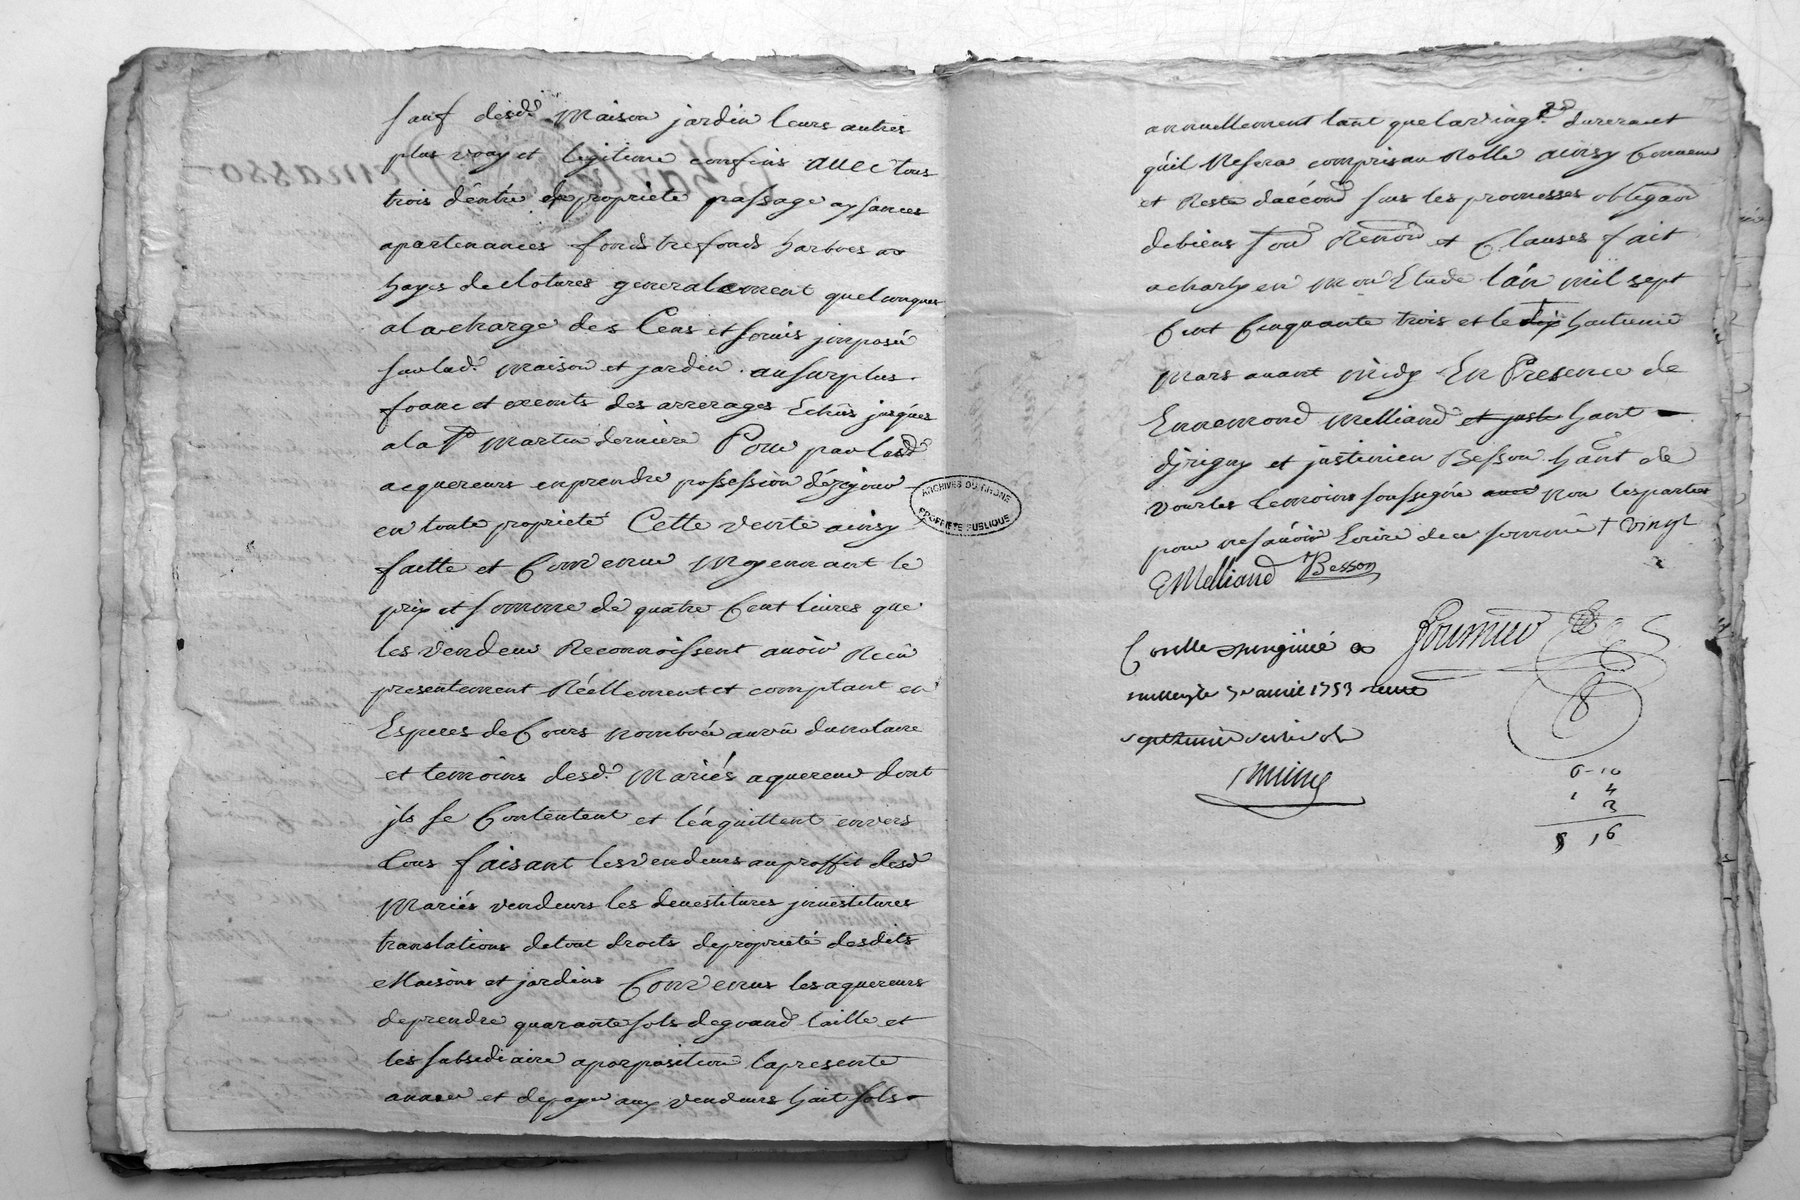 sauf desd. Maison jardin leurs autres
plus vray et legitime confins avec tous
trois d'entré de propriete passage aysances
apartenances fonds trefonds harbres
hayes de clotures generalement quelconques
a la charge des Cens et servis jmposés
sur lad. Maison et jardin au surplus
franc et exempts des arrerages Echûs jusques
a la St Martin derniere Pour par lesd
acquereurs en prendre possession
en toute proprieté Cette vente ainsy
faitte et Convenue Moyennant le
prix et somme de quatre Cent livres que
les vendeurs Reconnoissent avoir Receu
presentement Réellement et comptant en
Especes de Cours nombrée au vû du notaire
et temoins desd. Mariés aquereurs dont
jls se Contentent et l'enquittent envers
tous faisant les vendeurs au proffit desd
Mariés vendeurs les devestitures jnvestitures
translations de tout droits de proprieté desdits
Maisons et jardins Convenus les aquereurs
de prendre quarante sols de grand taille et
les subsidiaire a porposition la presente
année et de payer aux vendeurs huit sols
annuellement tant que la vingt.e durera et
qu'il Resera compris au Rolle ainsy Convenu
et Resté d'accord sous les promesses obligaon
de biens Renon et Clauses fait
a charly en Mon Etude l'an mil sept
Cent Cinquante trois et le dix huitieme
Mars avant midy En Presence de
Ennemond Melliand et just hant
d'jrigny et justinien Besson hant de
vourles temoins soussignés avec non les parties
pour ne sçavoir Ecrire de ce sommé + vingt
EMelliand Besson
Fournier
Conllé a
1753
6-10
1 4
3
8 16
ARCHIVES DU RHONE
PROPRIETE PUBLIQUE